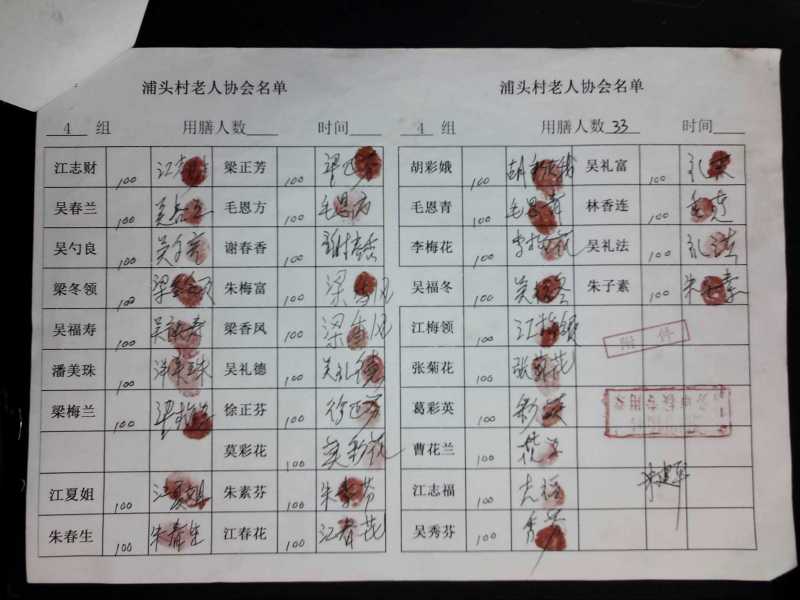 浦头村老人协会名单 浦头村老人协会名单
4 组 用膳人数 时间 4 组 用膳人数 33 时间
江志财 100 梁正芳 100 梁正芳 胡彩娥 100 胡彩娥 吴礼富 100 礼富
吴春兰 100 吴春兰 毛恩方 100 毛恩方 毛恩青 100 毛恩青 林香连 100
吴勺良 100 吴勺良 谢春香 100 谢春香 李梅花 100 李梅花 吴礼法 100 礼法
梁冬领 100 梁冬领 朱梅富 100 吴福冬 100 吴福冬 朱子素 100 朱子素
吴福寿 100 吴福寿 梁香风 100 梁香风 江梅领 100 江梅领
潘美珠 100 潘美珠 吴礼德 100 吴礼德 张菊花 100 张菊花 附件
梁梅兰 100 梁梅兰 徐正芬 100 徐正芬 葛彩英 100 彩英
莫彩花 100 莫彩花 曹花兰 100 花兰
江夏姐 100 江夏姐 朱素芬 100 朱素芬 江志福 100 志福
朱春生 100 朱春生 江春花 100 江春花 吴秀芬 100 秀芬